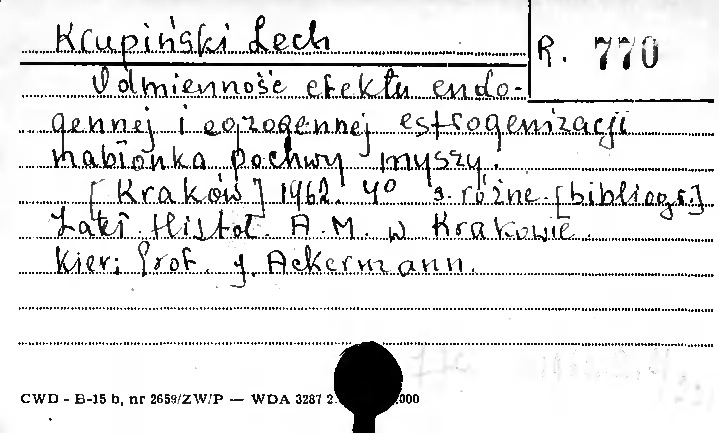 Krupiński Lech
R. 770
Odmienność efektu endo-
gennej i egzogennej estrogenizacji
nabłonka pochwy myszy.
[Kraków] 1962. 4° s. różne. [bibliogr.]
Zakł. Histol. A.M. w Krakowie.
Kier: Prof. J. Ackermann.
CWD - B-15 b, nr 2659/ZW/P — WDA 3287 2 000